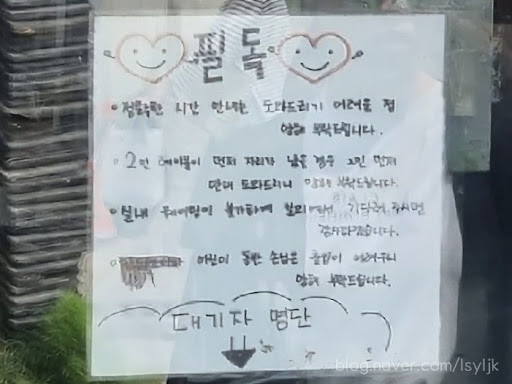 필독
• 정확한 시간 안내는 도와드리기 어려운 점
양해 부탁드립니다.
• 2인 테이블이 먼저 자리가 났을 경우 2인 먼저
안내 도와드리니 양해 부탁드립니다.
• 실내 웨이팅이 불가하게 밖에서 기다려 주시면
감사하겠습니다.
• 어린이 동반 손님은 출입이 어려우니
양해 부탁드립니다.
대기자 명단
blog.naver.com/lsyljk